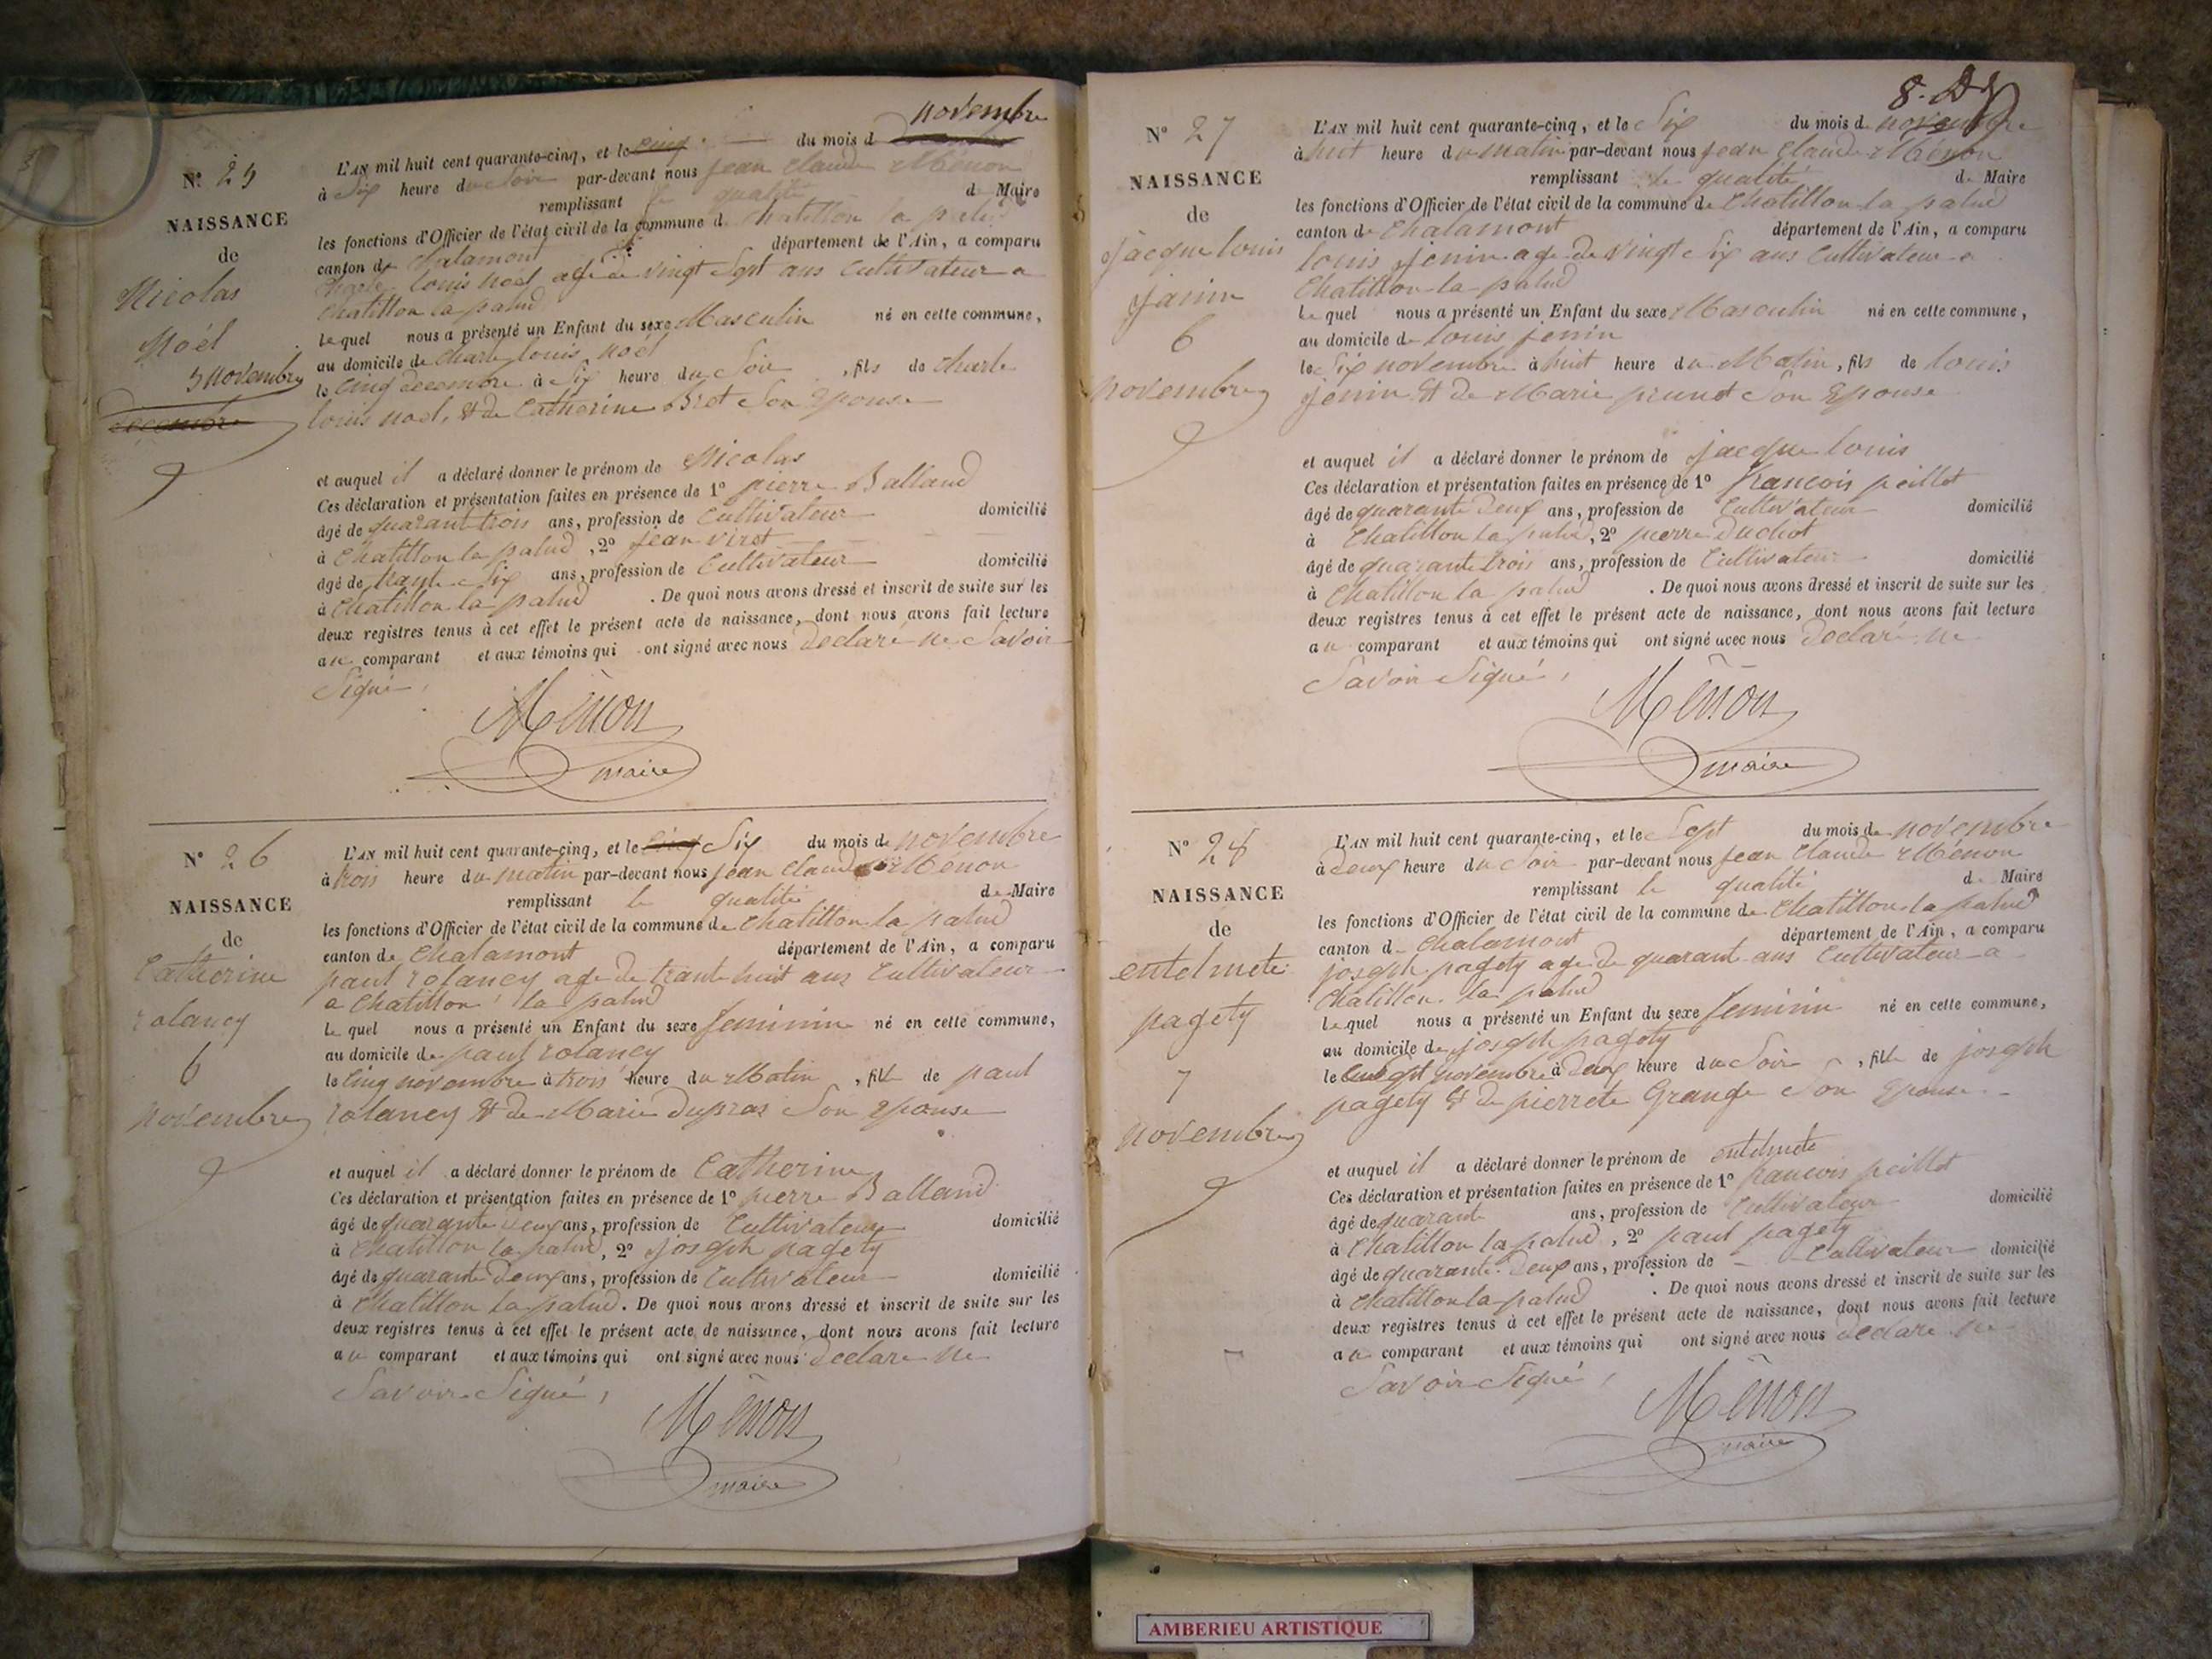 novembre
Nº 25
NAISSANCE
de
Nicolas
Noël
5 novembre
decembre
L'AN mil huit cent quarante-cinq, et le cinq du mois d
à Six heure du Soir par-devant nous jean Claude Ménon
remplissant la qualité de Maire
les fonctions d'Officier de l'état civil de la commune d. Chatillon la palud
canton de Chalamont département de l'Ain, a comparu
Charle louis noël agé de vingt Sept ans Cultivateur a
Chatillon la palud
le quel nous a présenté un Enfant du sexe Masculin né en cette commune,
au domicile de Charle louis noël
le Cinq decembre à Six heure du Soir, fils de Charle
louis noël, & de Catherine Bret Son Epouse
et auquel il a déclaré donner le prénom de Nicolas
Ces déclaration et présentation faites en présence de 1º pierre Balland
âgé de quarant trois ans, profession de Cultivateur domicilié
à Chatillon la palud, 2º jean viret
âgé de trante Six ans, profession de Cultivateur domicilié
à Chatillon la palud. De quoi nous avons dressé et inscrit de suite sur les
deux registres tenus à cet effet le présent acte de naissance, dont nous avons fait lecture
au comparant et aux témoins qui ont signé avec nous declaré ne Savoir
Signé,
Ménon
maire
Nº 26
NAISSANCE
de
Catherine
rolancy
6
novembre
L'AN mil huit cent quarante-cinq, et le cinq Six du mois de novembre
à trois heure du matin par-devant nous jean Claude Ménon
remplissant la qualité de Maire
les fonctions d'Officier de l'état civil de la commune de Chatillon la palud
canton de Chalamont département de l'Ain, a comparu
paul rolancy agé de trante huit ans Cultivateur
a Chatillon la palud
le quel nous a présenté un Enfant du sexe feminin né en cette commune,
au domicile de paul rolancy
le Cinq novembre à trois heure du Matin, fille de paul
rolancy & de Marie dupras Son Epouse
et auquel il a déclaré donner le prénom de Catherine
Ces déclaration et présentation faites en présence de 1º pierre Balland
âgé de quarante deux ans, profession de Cultivateur domicilié
à Chatillon la palud, 2º joseph pagety
âgé de quarante Deux ans, profession de Cultivateur domicilié
à Chatillon la palud. De quoi nous avons dressé et inscrit de suite sur les
deux registres tenus à cet effet le présent acte de naissance, dont nous avons fait lecture
au comparant et aux témoins qui ont signé avec nous declare ne
Savoir Signé,
Ménon
maire
8.
Nº 27
NAISSANCE
de
jacque louis
janin
6
novembre
L'AN mil huit cent quarante-cinq, et le Six du mois de novembre
à huit heure du matin par-devant nous jean Claude Ménon
remplissant la qualité de Maire
les fonctions d'Officier de l'état civil de la commune de Chatillon la palud
canton de Chalamont département de l'Ain, a comparu
louis jenin age de vingt Six ans Cultivateur a
Chatillon la palud
le quel nous a présenté un Enfant du sexe Masculin né en cette commune,
au domicile de louis jenin
le Six novembre à huit heure du Matin, fils de louis
jenin & de Marie prunet Son Epouse
et auquel il a déclaré donner le prénom de jacque louis
Ces déclaration et présentation faites en présence de 1º francois peillet
âgé de quarante Deux ans, profession de Cultivateur domicilié
à Chatillon la palud, 2º pierre Duchot
âgé de quarante trois ans, profession de Cultivateur domicilié
à Chatillon la palud. De quoi nous avons dressé et inscrit de suite sur les
deux registres tenus à cet effet le présent acte de naissance, dont nous avons fait lecture
au comparant et aux témoins qui ont signé avec nous Declaré ne
Savoir Signé,
Ménon
maire
Nº 28
NAISSANCE
de
entelmete
pagety
7
novembre
L'AN mil huit cent quarante-cinq, et le Sept du mois de novembre
à deux heure du Soir par-devant nous jean Claude Ménon
remplissant la qualité de Maire
les fonctions d'Officier de l'état civil de la commune de Chatillon la palud
canton d. Chalamont département de l'Ain, a comparu
joseph pagety age de quarant ans Cultivateur a
Chatillon la palud
le quel nous a présenté un Enfant du sexe feminin né en cette commune,
au domicile de joseph pagety
le Sept novembre à Deux heure du Soir, fille de joseph
pagety & de pierrete Grange Son Epouse
et auquel il a déclaré donner le prénom de entelmete
Ces déclaration et présentation faites en présence de 1º francois peillet
âgé de quarant ans, profession de Cultivateur domicilié
à Chatillon la palud, 2º paul pagety
âgé de quarante Deux ans, profession de Cultivateur domicilié
à Chatillon la palud. De quoi nous avons dressé et inscrit de suite sur les
deux registres tenus à cet effet le présent acte de naissance, dont nous avons fait lecture
au comparant et aux témoins qui ont signé avec nous declare ne
Savoir Signé,
Ménon
maire
AMBERIEU ARTISTIQUE